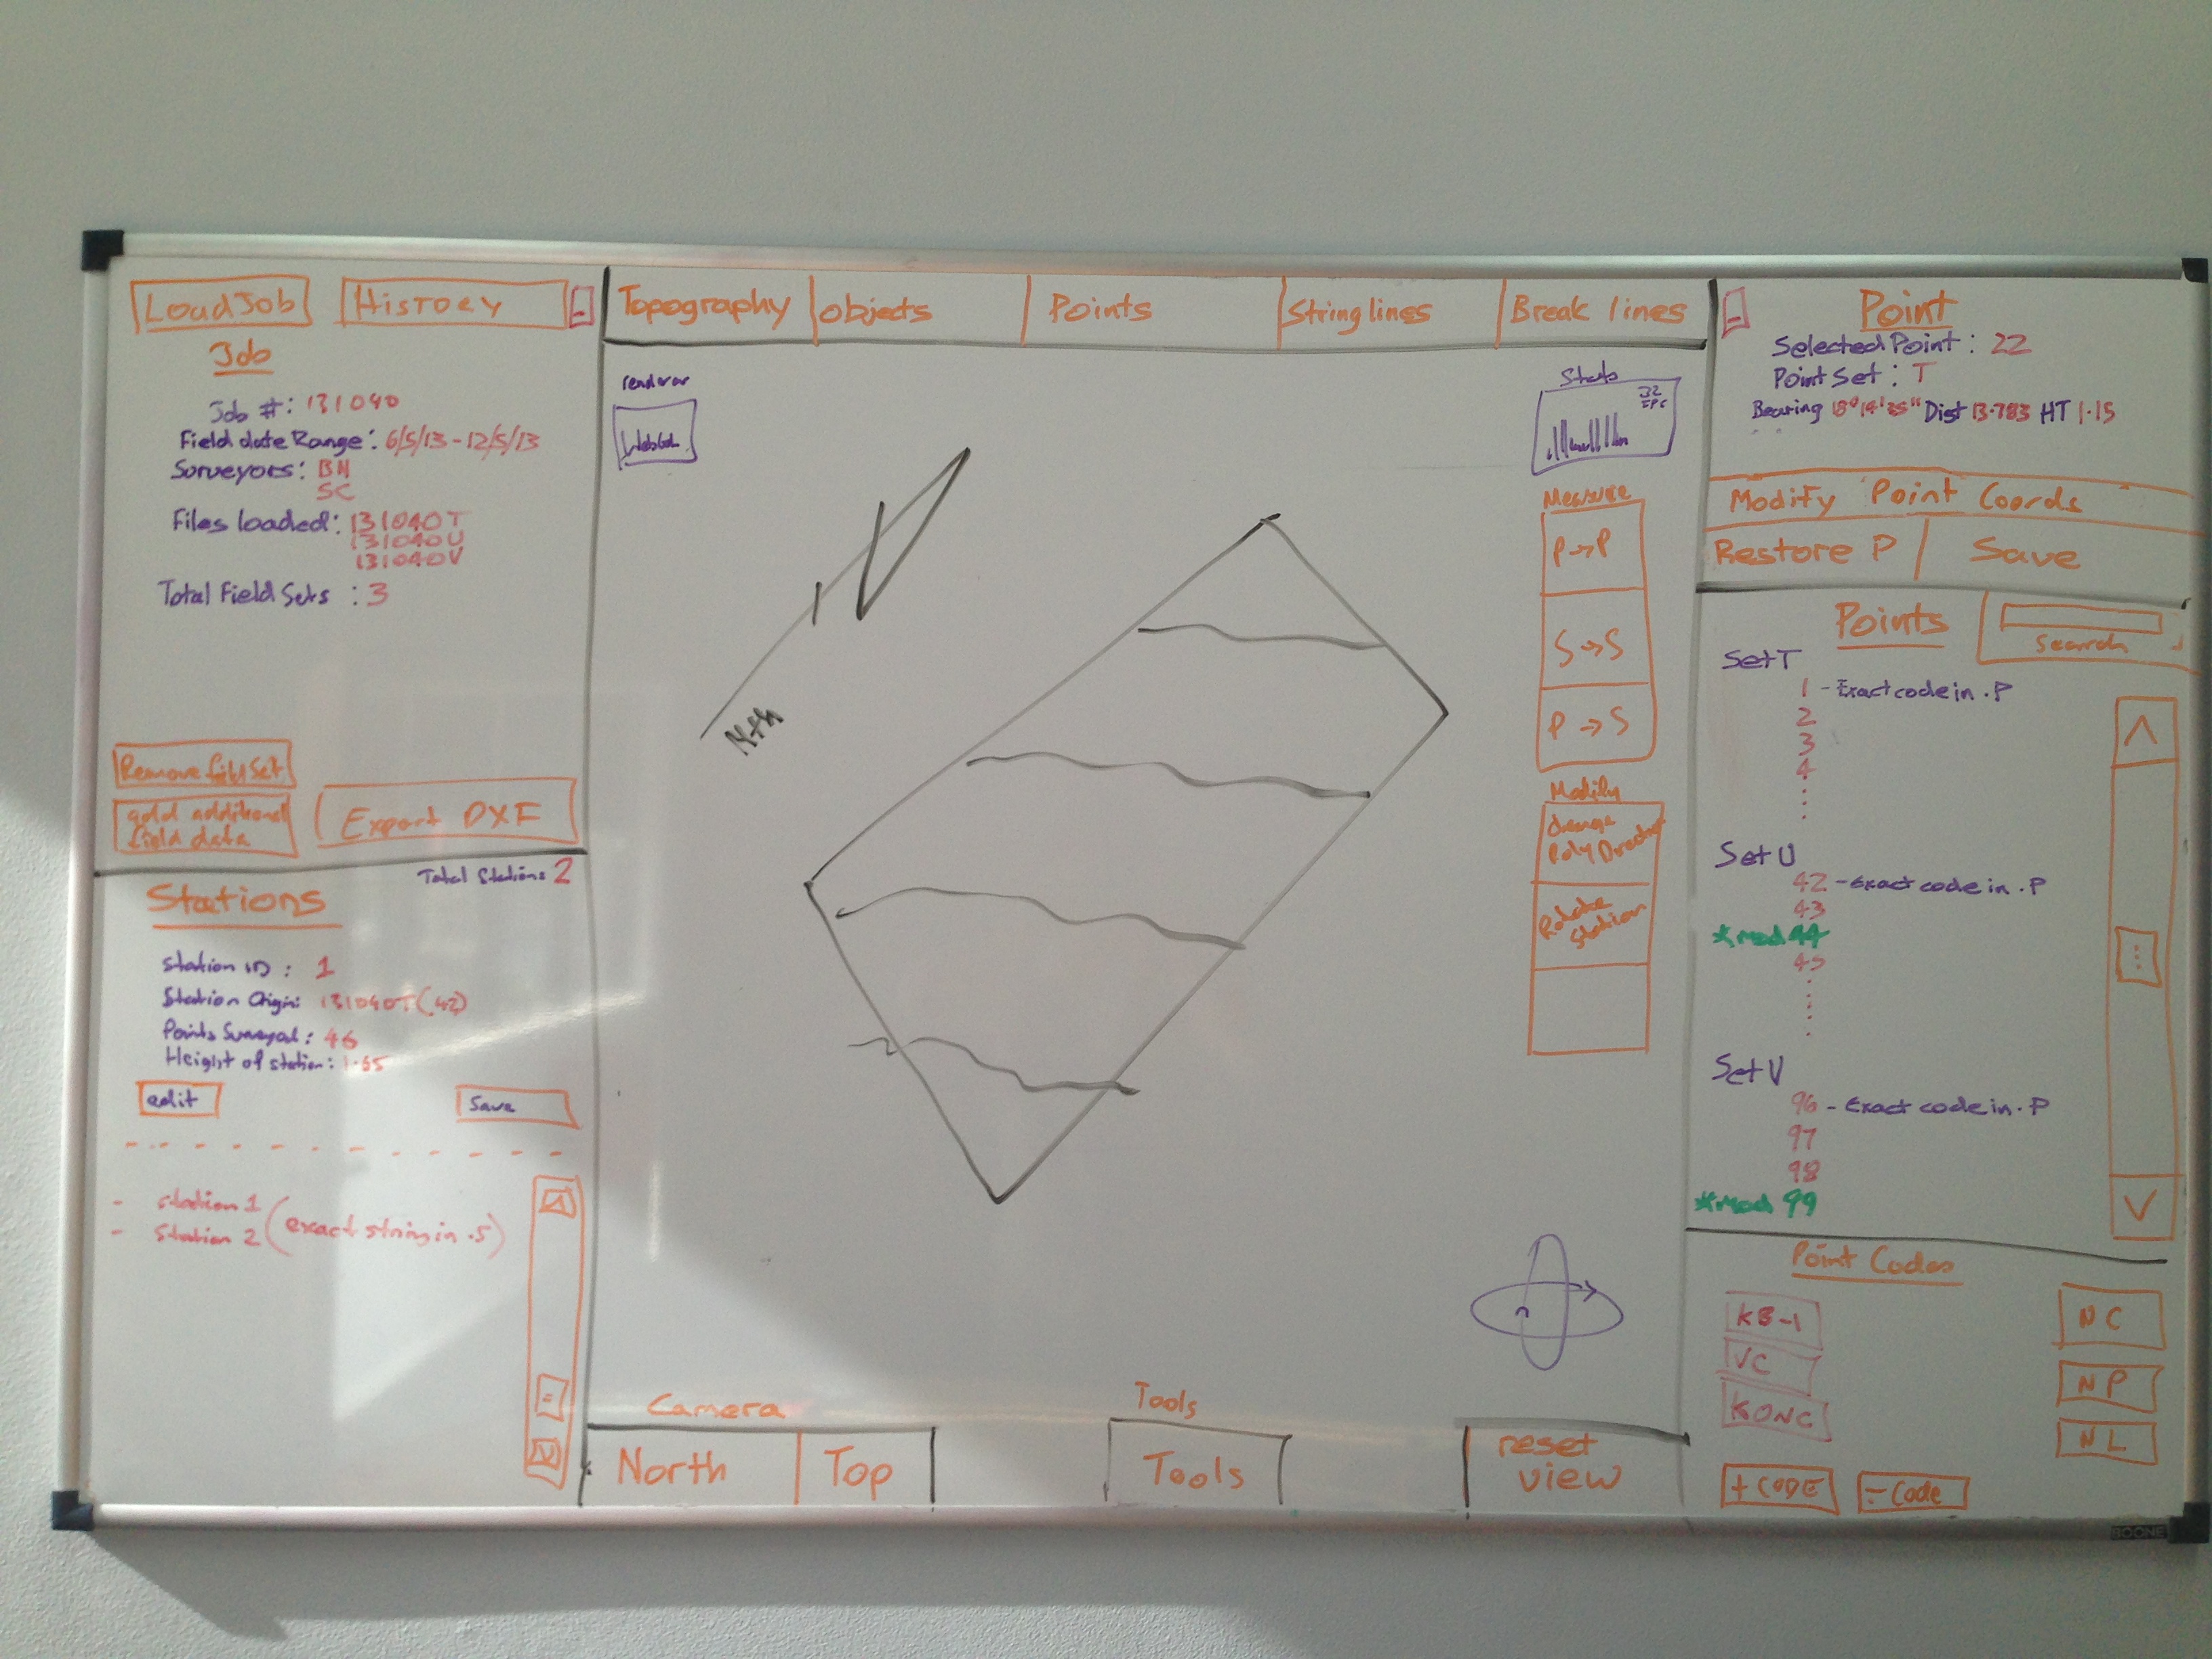 Load Job
History
-
Job
Job #: 131040
Field date Range: 6/5/13 - 12/5/13
Surveyors: BN
SC
Files loaded: 131040T
131040U
131040V
Total Field Sets : 3
Remove field set
add additional
field data
Export DXF
Total Stations 2
Stations
Station ID : 1
Station Origin: 131040T(.42)
Points Surveyed: 46
Height of station: 1.65
edit
Save
- Station 1
- Station 2
(exact string in .S)
Topography
objects
Points
String lines
Break lines
renderer
WebGL
Stats
32
FPS
Nth
Measure
P → P
S → S
P → S
Modify
Change
Poly Direction
Rotate
Station
Camera
North
Top
Tools
Tools
reset
view
-
Point
Selected Point : 22
Point Set : T
Bearing 18°14'35" Dist 13.783 HT 1.15
Modify Point Coords
Restore P
Save
Points
Search
Set T
1 - Exact code in .P
2
3
4
Set U
42 - Exact code in .P
43
*Mod 44
45
Set V
96 - Exact code in .P
97
98
*Mod 99
Point Codes
KB-1
VC
KONC
NC
NP
NL
+ CODE
- Code
BOONE